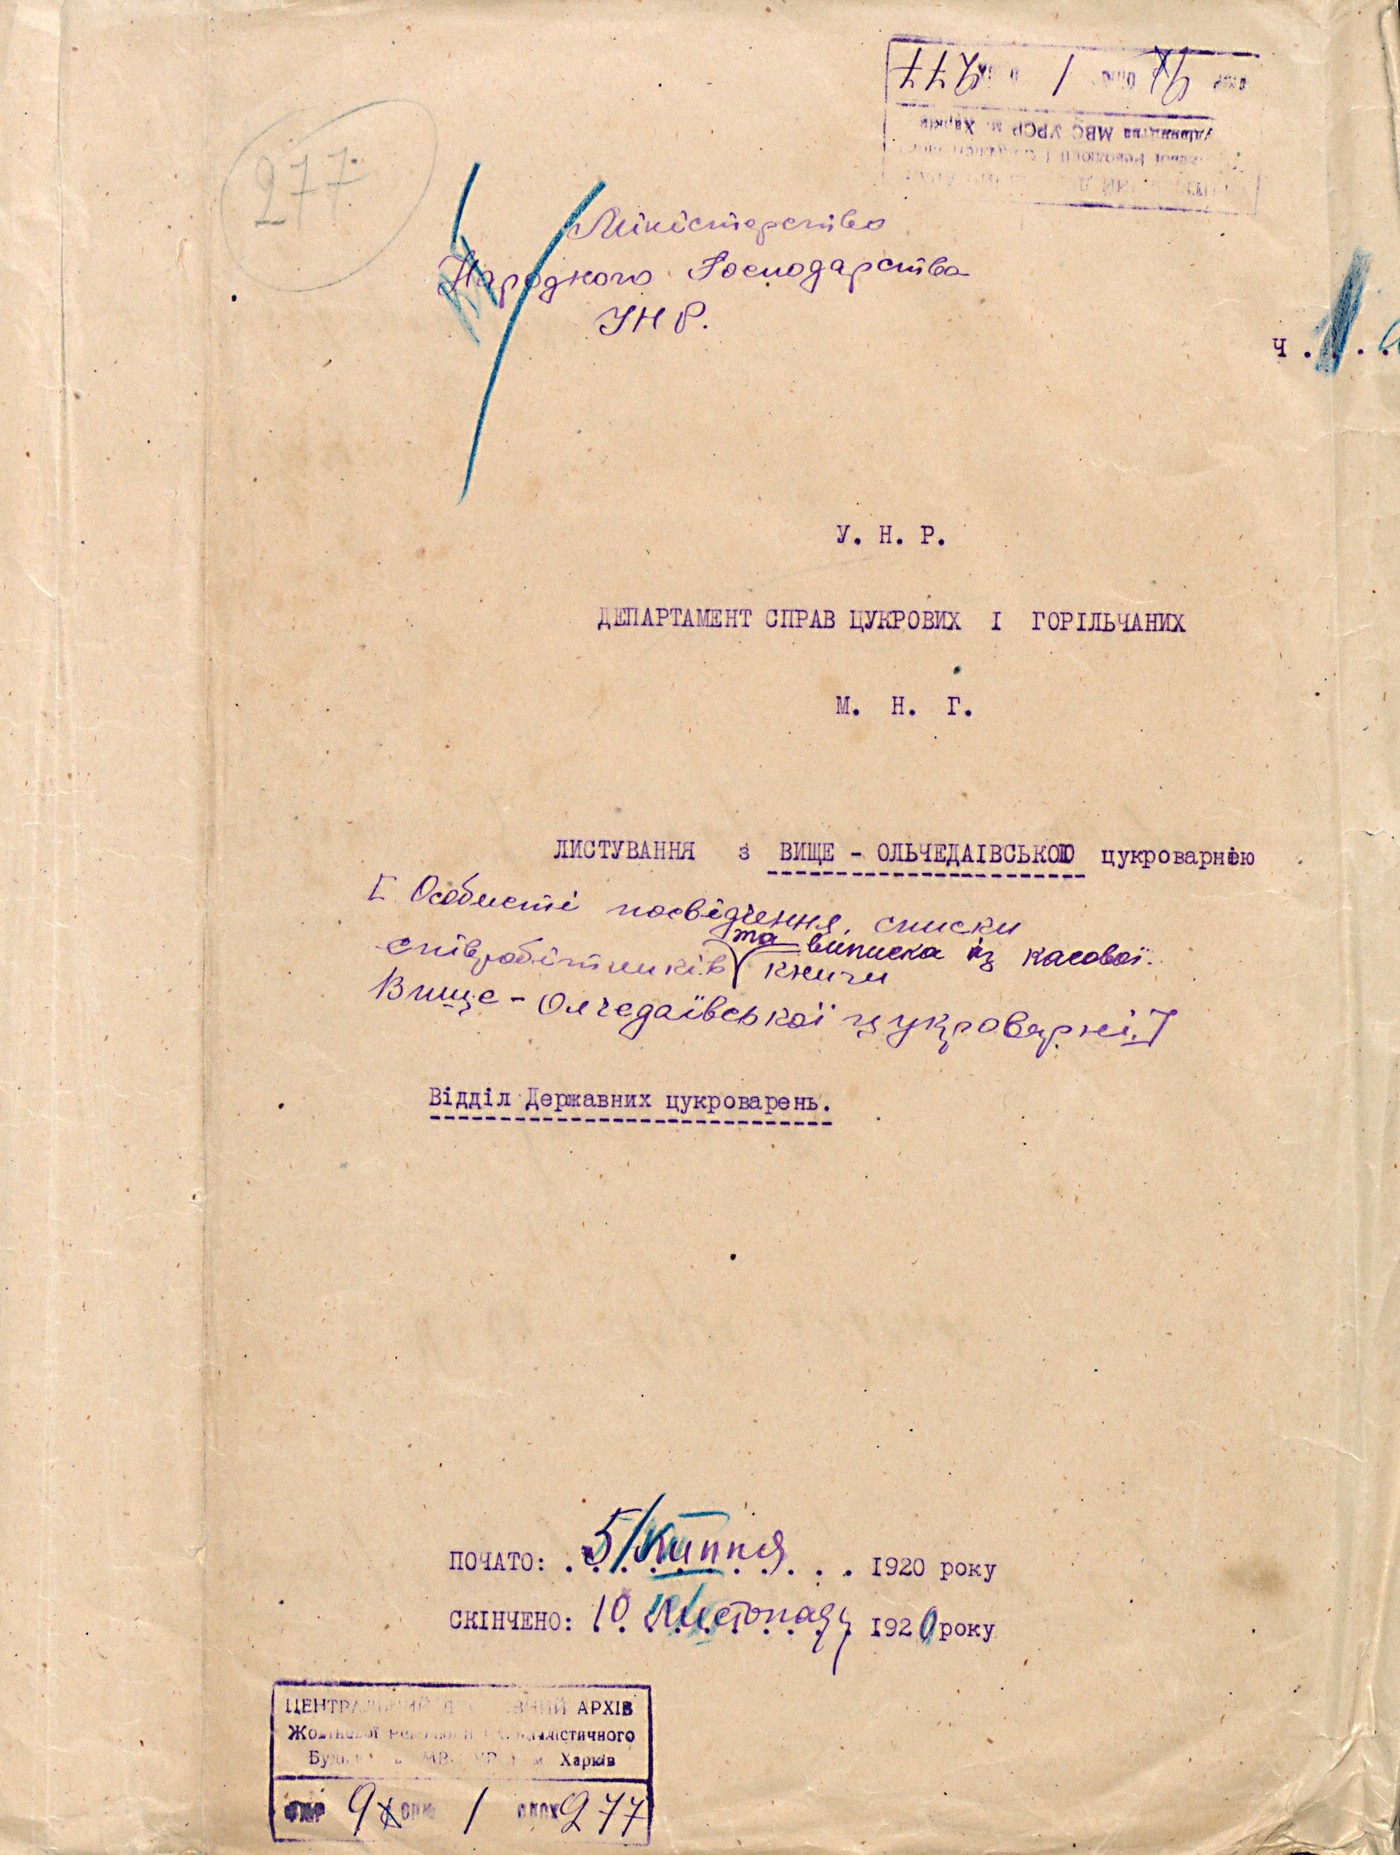 277
Міністерство
Народного Господарства
УНР.
Ч . . . .
У. Н. Р.
ДЕПАРТАМЕНТ СПРАВ ЦУКРОВИХ І ГОРІЛЬЧАНИХ
М. Н. Г.
ЛИСТУВАННЯ з ВИЩЕ - ОЛЬЧЕДАІВСЬКОЮ цукроварнею
[ Особисті посвідчення, списки
співробітників та виписка із касової
книги
Вище - Олчедаївської цукроварні.]
Відділ Державних цукроварень.
ПОЧАТО: 5/Липня 1920 року
СКІНЧЕНО: 10 Листопаду 1920 року
ЦЕНТРАЛЬНИЙ ДЕРЖАВНИЙ АРХІВ
Жовтневої революції і соціалістичного
Будівництва МВС УРСР м. Харків
ФКР 9 опис 1 277
Будівництва МВС УРСР м. Харків
1 277